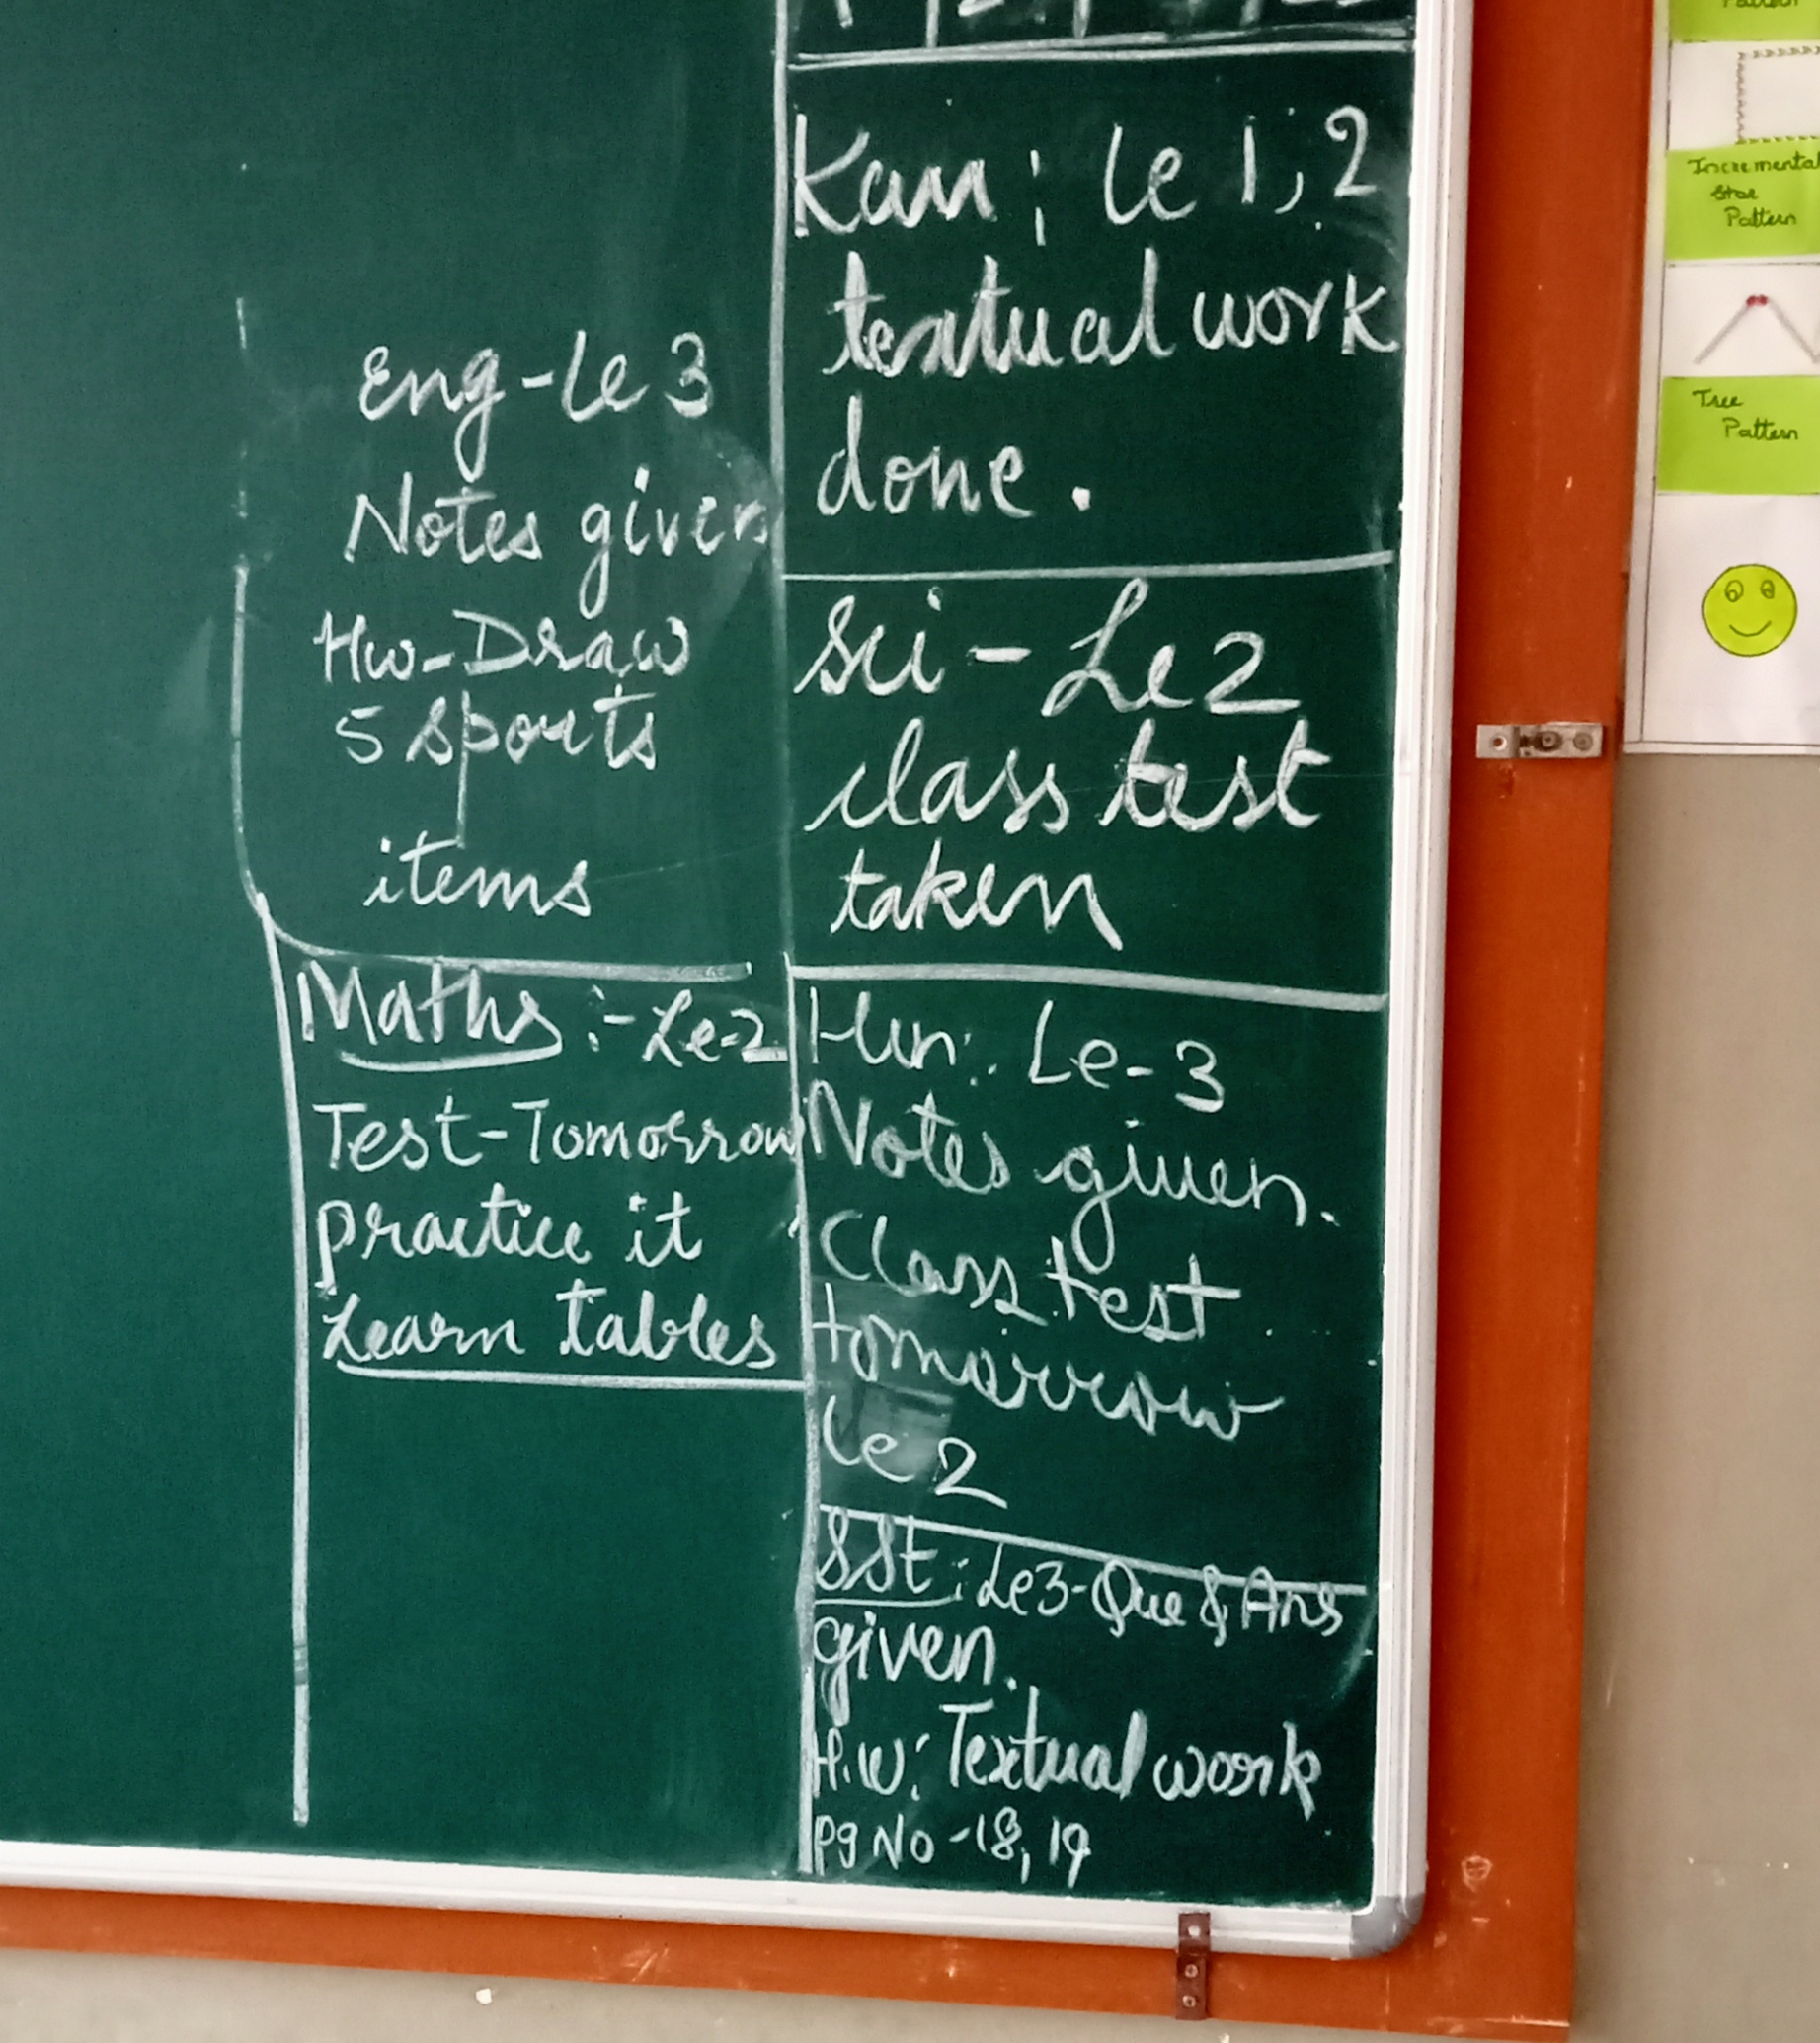 Kan : Le 1, 2
textual work
done.
Sci - Le 2
class test
taken
Hin: Le - 3
Notes given.
Class test
tomorrow
Le 2
SSt : Le3 - Que & Ans
given.
H.W: Textual work
Pg No - 18, 19
Eng - Le 3
Notes given
Hw - Draw
5 sports
items
Maths :- Le-2
Test - Tomorrow
practice it
Learn tables
Pattern
Incremental
Star
Pattern
Tree
Pattern